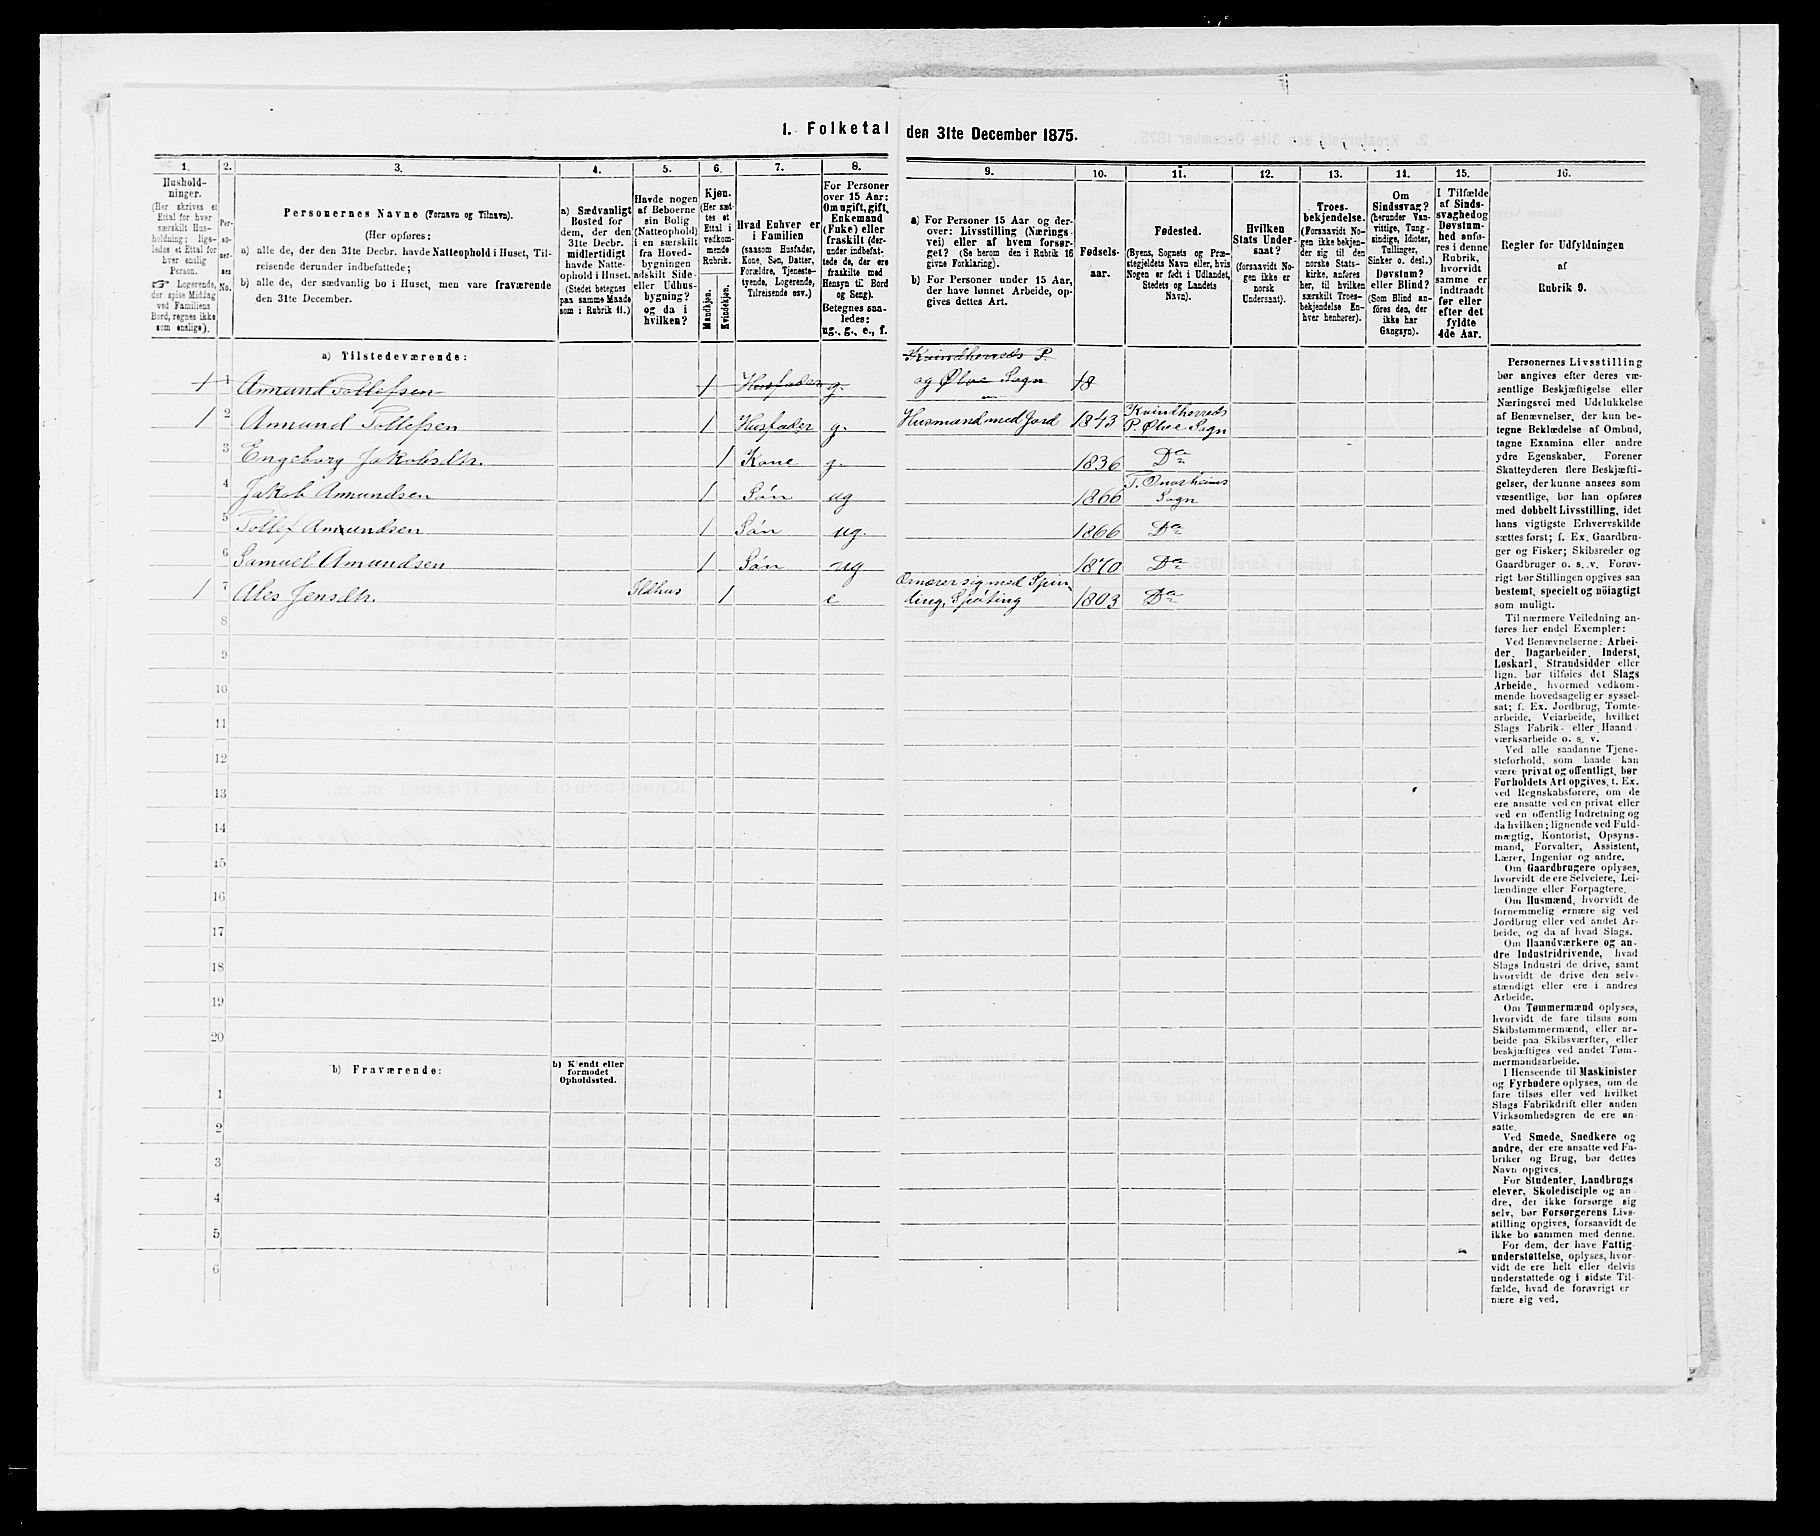 1. Folketal den 31te December 1875.
1. 2. 3. 4. 5. 6. 7. 8. 9. 10. 11. 12. 13. 14. 15. 16.
Hushold-
ninger.
(Her skrives et
Ettal for hver
særskilt Hus-
holdning; lige-
ledes et Ettal for
hver enslig
Person.
☞ Logerende,
der spise Middag
ved Familiens
Bord, regnes ikke
som enslige).
Per-
so-
ner-
nes
No.
Personernes Navne (Fornavn og Tilnavn).
(Her opføres:
a) alle de, der den 31te Decbr. havde Natteophold i Huset, Til-
reisende derunder indbefattede;
b) alle de, der sædvanlig bo i Huset, men vare fraværende
den 31te December.
a) Sædvanligt
Bosted for
dem, der den
31te Decbr.
midlertidigt
havde Natte-
ophold i Huset.
(Stedet betegnes
paa samme Maade
som i Rubrik 11.)
Havde nogen
af Beboerne
sin Bolig
(Natteophold)
i en særskilt
fra Hoved-
bygningen
adskilt Side-
eller Udhus-
bygning?
og da i
hvilken?
Kjøn.
(Her sæt-
tes et
Ettal i
vedkom-
mende
Rubrik.
Mandkjøn.
Kvindekjøn.
Hvad Enhver er
i Familien
(saasom Husfader,
Kone, Søn, Datter,
Forældre, Tjeneste-
tyende, Logerende,
Tilreisende osv.)
For Personer
over 15 Aar:
Om ugift, gift,
Enkemand
(Enke) eller
fraskilt (der-
under indbefat-
tede de, der ere
fraskilte med
Hensyn til Bord
og Seng).
Betegnes saa-
ledes:
ug., g., e., f.
a) For Personer 15 Aar og der-
over: Livsstilling (Nærings-
vei) eller af hvem forsør-
get? (Se herom den i Rubrik 16
givne Forklaring).
b) For Personer under 15 Aar,
der have lønnet Arbeide, op-
gives dettes Art.
Fødsels-
aar.
Fødested.
(Byens, Sognets og Præ-
stegjeldets Navn eller, hvis
Nogen er født i Udlandet,
Stedets og Landets
Navn).
Hvilken
Stats Under-
saat?
(forsaavidt No-
gen ikke er
norsk
Undersaat).
Troes-
bekjendelse.
(Forsaavidt No-
gen ikke bekjen-
der sig til den
norske Stats-
kirke, anføres
her, til hvilken
særskilt Troes-
bekjendelse En-
hver henhører).
Om
Sindssvag?
(herunder Van-
vittige, Tung-
sindige, Idioter,
Tullinger,
Sinker o. desl.)
Døvstum?
eller Blind?
(Som Blind an-
føres den, der
ikke har
Gangsyn).
I Tilfælde
af Sinds-
svaghed og
Døvstum-
hed anfø-
res i denne
Rubrik,
hvorvidt
samme er
indtraadt
før eller
efter det
fyldte
4de Aar.
Regler for Udfyldningen
af
Rubrik 9.
a) Tilstedeværende:
Kvindherreds P.
1 1 Amund Tollefsen 1 Husfader g. og Ølve Sogn 18
1 2 Amund Tollefsen 1 Husfader g. Husmand med Jord 1843 Kvindherreds
P. Ølve Sogn
3 Engeborg Jakobsdtr. 1 Kone g. 1836 Do
4 Jakob Amundsen 1 Søn ug 1866 T. Onarheims
Sogn
5 Tollef Amundsen 1 Søn ug. 1866 Do
6 Samuel Amundsen 1 Søn ug 1870 Do
1 7 Ales Jensdtr. Ildhus 1 e Ernærer sig med Spin-
ding, Spøting 1803 Do
8
9
10
11
12
13
14
15
16
17
18
19
20
b) Fraværende:
b) Kjendt eller
formodet
Opholdssted.
1
2
3
4
5
6
Personernes Livsstilling
bør angives efter deres væ-
sentlige Beskjæftigelse eller
Næringsvei med Udelukkelse
af Benævnelser, der kun be-
tegne Beklædelse af Ombud,
tagne Examina eller andre
ydre Egenskaber. Forener
Skatteyderen flere Beskjæfti-
gelser, der kunne ansees som
væsentlige, bør han opføres
med dobbelt Livsstilling, idet
hans vigtigste Erhvervskilde
sættes først; f. Ex. Gaardbru-
ger og Fisker; Skibsreder og
Gaardbruger o. s. v. Forøv-
rigt bør Stillingen opgives saa
bestemt, specielt og nøiagtigt
som muligt.
Til nærmere Veiledning an-
føres her endel Exempler:
Ved Benævnelserne: Arbei-
der, Dagarbeider, Inderst,
Løskarl, Strandsidder eller
lign. bør tilføies det Slags
Arbeide, hvormed vedkom-
mende hovedsagelig er syssel-
sat; f. Ex. Jordbrug, Tomte-
arbeide, Veiarbeide, hvilket
Slags Fabrik- eller Haand-
værksarbeide o. s. v.
Ved alle saadanne Tjene-
steforhold, som baade kan
være privat og offentligt, bør
Forholdets Art opgives, t. Ex.
ved Regnskabsførere, om de
ere ansatte ved en privat eller
ved en offentlig Indretning og
da hvilken; lignende ved Fuld-
mægtig, Kontorist, Opsyns-
mand, Forvalter, Assistent,
Lærer, Ingeniør og andre.
Om Gaardbrugere oplyses,
hvorvidt de ere Selveiere, Lei-
lændinge eller Forpagtere.
Om Husmænd, hvorvidt de
fornemmelig ernære sig ved
Jordbrug eller ved andet Ar-
beide, og da af hvad Slags.
Om Haandværkere og an-
dre Industridrivende, hvad
Slags Industri de drive, samt
hvorvidt de drive den selv-
stændigt eller ere i andres
Arbeide.
Om Tømmermænd oplyses,
hvorvidt de fare tilsøs som
Skibstømmermænd, eller ar-
beide paa Skibsværfter, eller
beskjæftiges ved andet Tøm-
mermandsarbeide.
I Henseende til Maskinister
og Fyrbødere oplyses, om de
fare tilsøs eller ved hvilket
Slags Fabrikdrift eller anden
Virksomhedsgren de ere an-
satte.
Ved Smede, Snedkere og
andre, der ere ansatte ved Fa-
briker og Brug, bør dettes
Navn opgives.
For Studenter, Landbrugs-
elever, Skoledisciple og an-
dre, der ikke forsørge sig
selv, bør Forsørgerens Livs-
stilling opgives, forsaavidt de
ikke bo sammen med denne.
For dem, der have Fattig-
understøttelse, oplyses, hvor-
vidt de ere helt eller delvis
understøttede og i sidste Til-
fælde, hvad de forøvrigt er-
nære sig ved.